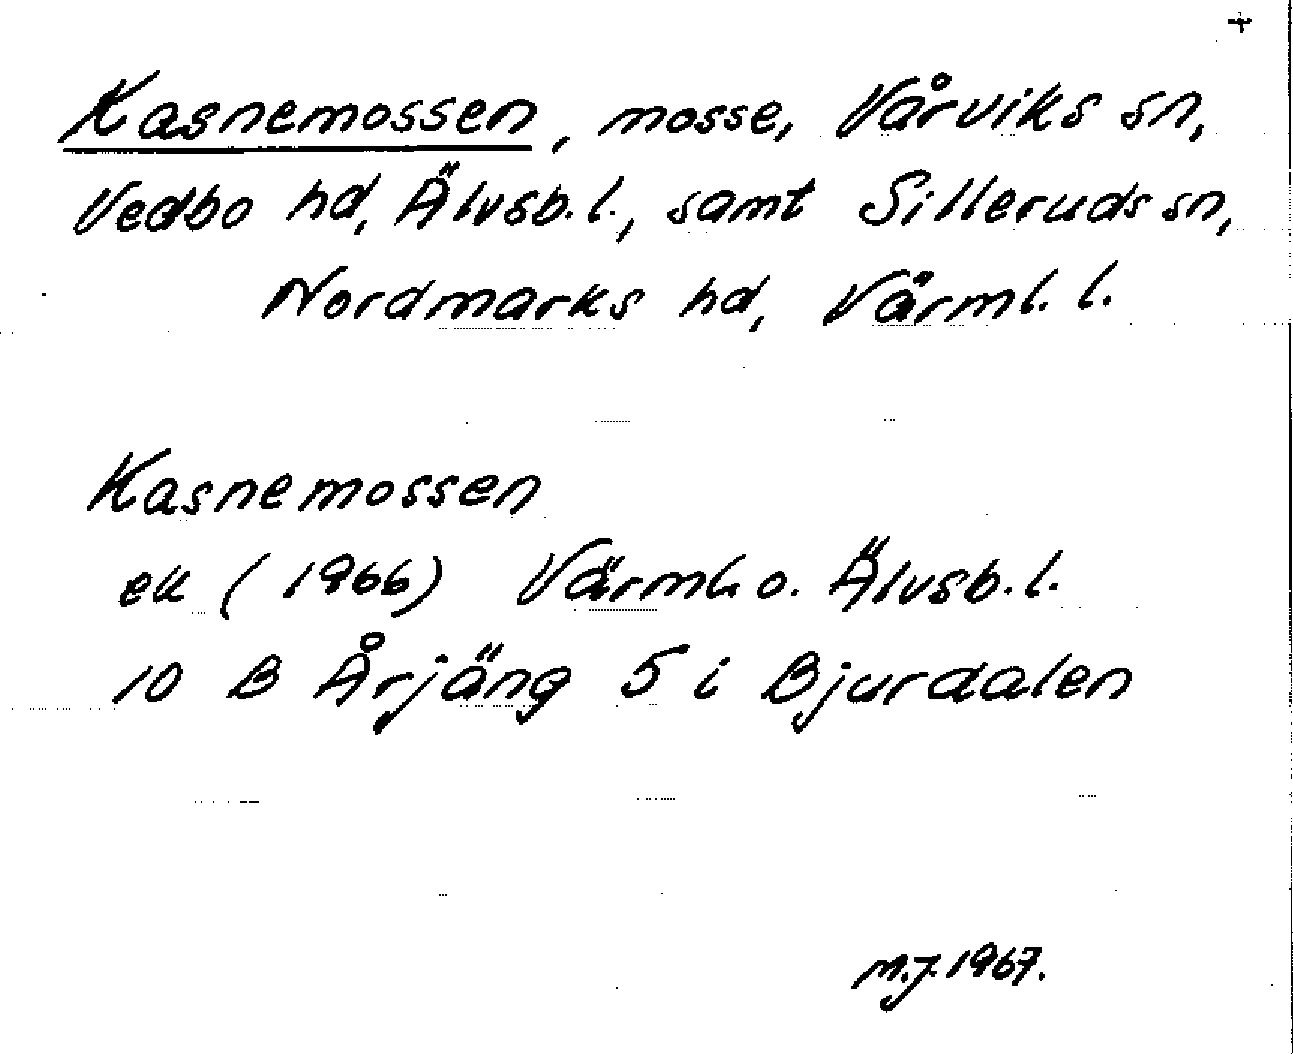 +
Kasnemossen, mosse, Vårviks sn,
Vedbo hd, Älvsb. l., samt Silleruds sn,
Nordmarks hd, Värml. l.
Kasnemossen
ek (1966) Värml. o. Älvsb. l.
10 B Årjäng 5 i Bjurdalen
M.J. 1967.